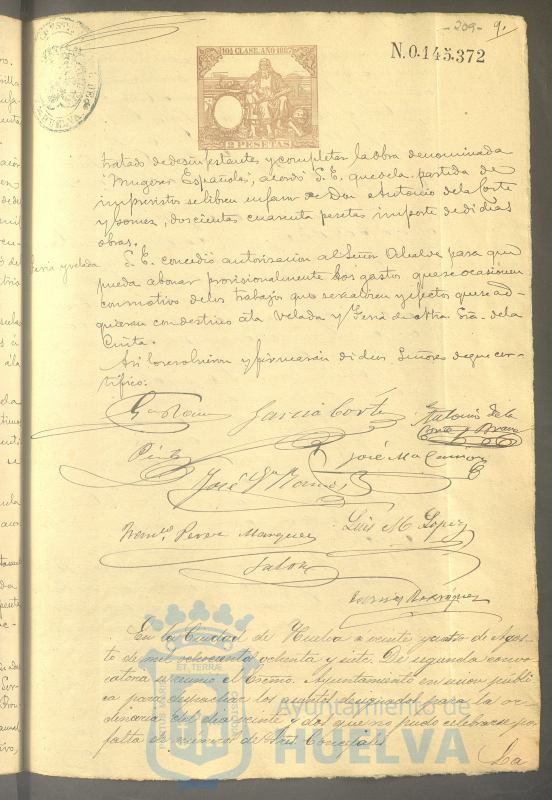 -209- 9.
N.0.145.372
10ª CLASE. AÑO 1887
12 PESETAS
tratado de desinfestantes y completar la obra denominada
"Mugeres Españolas", acordó S. E. que de la partida de
imprevistos se libren en favor de Don Antonio de la Corte
y Gomez, doscientas cuarenta pesetas importe de dichas
obras.
Feria y velada
S. E. concedió autorizacion al Señor Alcalde para que
pueda abonar provisionalmente los gastos que se ocasionen
con motivo de los trabajos que se realicen y efectos que se ad-
quieran con destino á la Velada y Feria de Ntra. Sra. de la
Cinta.
Asi lo resolvieron y firmarán dichos Señores de que cer-
tifico:
Garcia Cortes
Antonio de la
Corte y Bravo
José Mª
José
Perez Marquez
Luis M. Lopez
En la Ciudad de Huelva a veinte y cuatro de Agos-
to de mil ochocientos ochenta y siete. De segunda convo-
catoria se reunió el Excmo. Ayuntamiento en sesion públi-
ca para despachar los asuntos designados para la or-
dinaria del dia veinte y dos que no pudo celebrarse por
falta de número de Sres. Concejales.
La
Ayuntamiento de
HUELVA